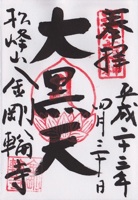 奉拝
平成二十三年
四月三十日
大黒天
松峰山金剛輪寺